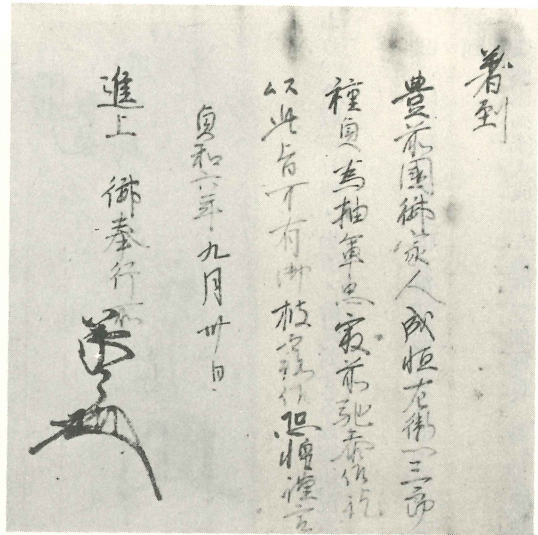 着到
豊前國御家人成恒左衛門三郎
種貞為抽軍忠最前馳参候訖
以此旨可有御披露候恐惶謹言
貞和六年九月卅日
進上 御奉行所